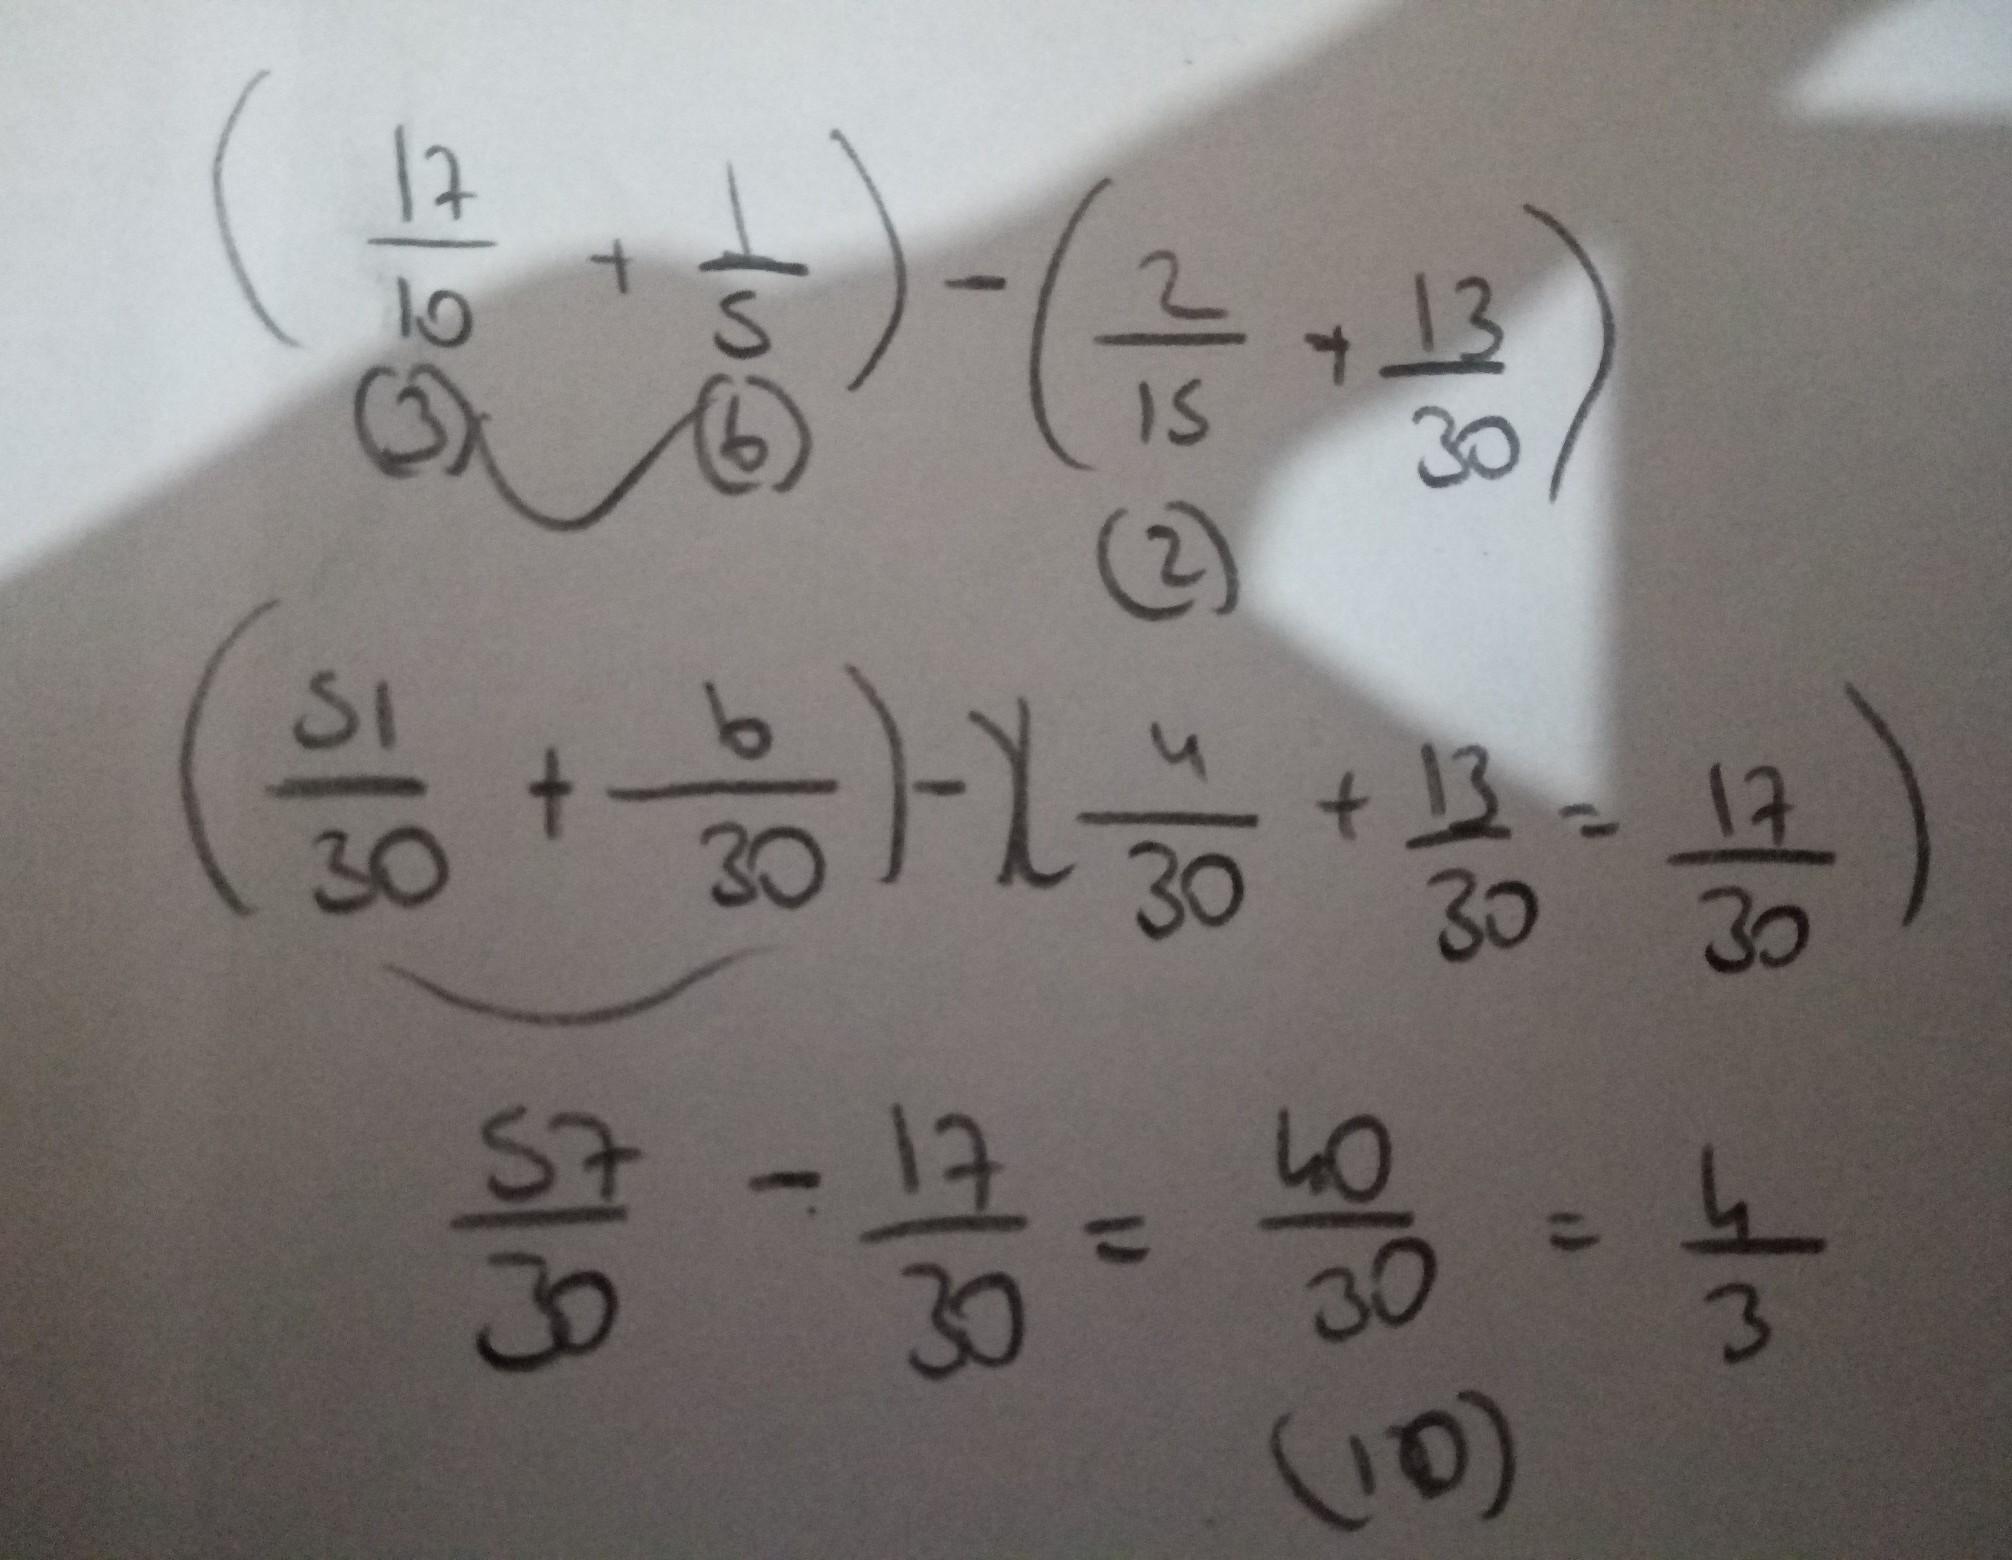 (17/10 + 1/5) - (2/15 + 13/30)
(3) (6) (2)
(51/30 + 6/30) - (4/30 + 13/30 = 17/30)
57/30 - 17/30 = 40/30 = 4/3
(10)